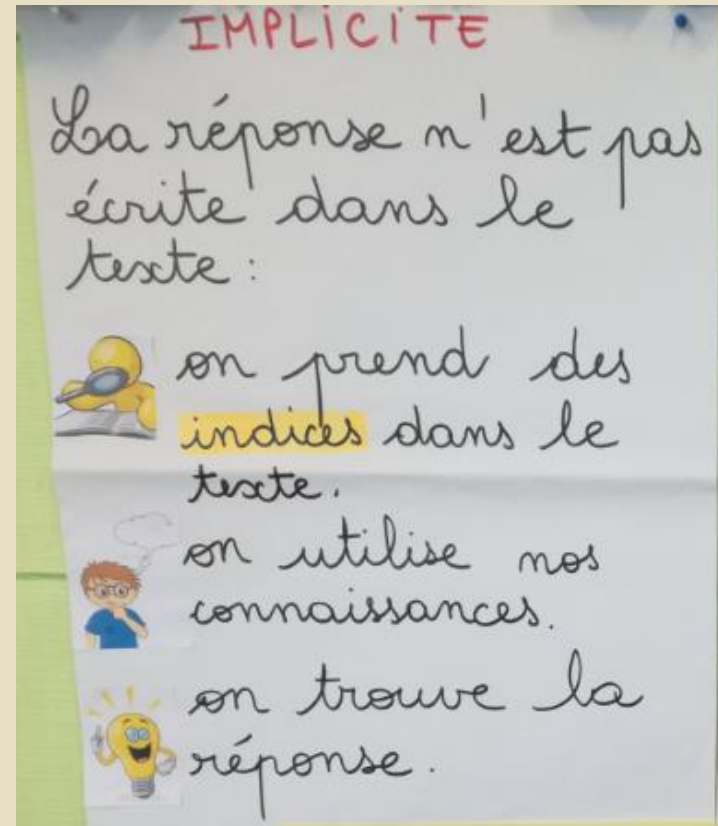 IMPLICITE
La réponse n'est pas
écrite dans le
texte :
on prend des
indices dans le
texte.
on utilise nos
connaissances.
on trouve la
réponse.